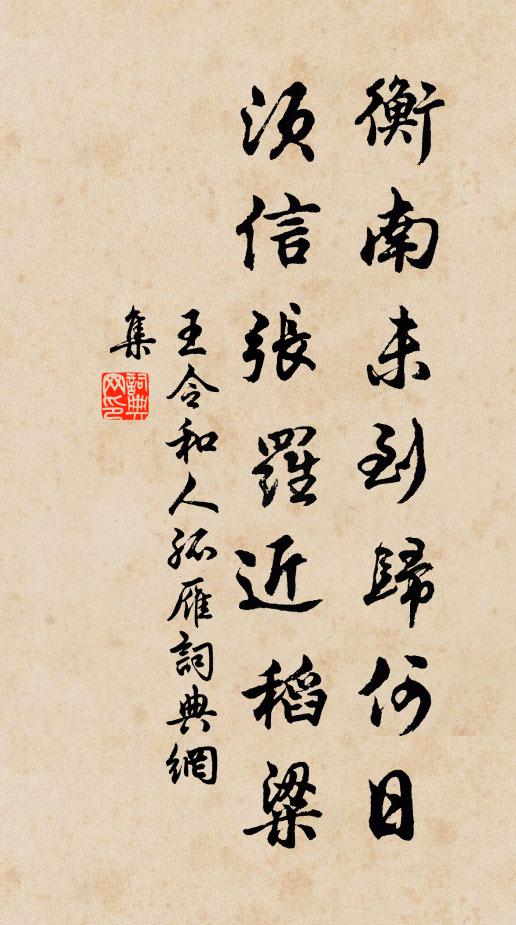 衡南未到歸何日
須信張羅近稻粱
王令和人孤雁詞典網
集
詞典網印